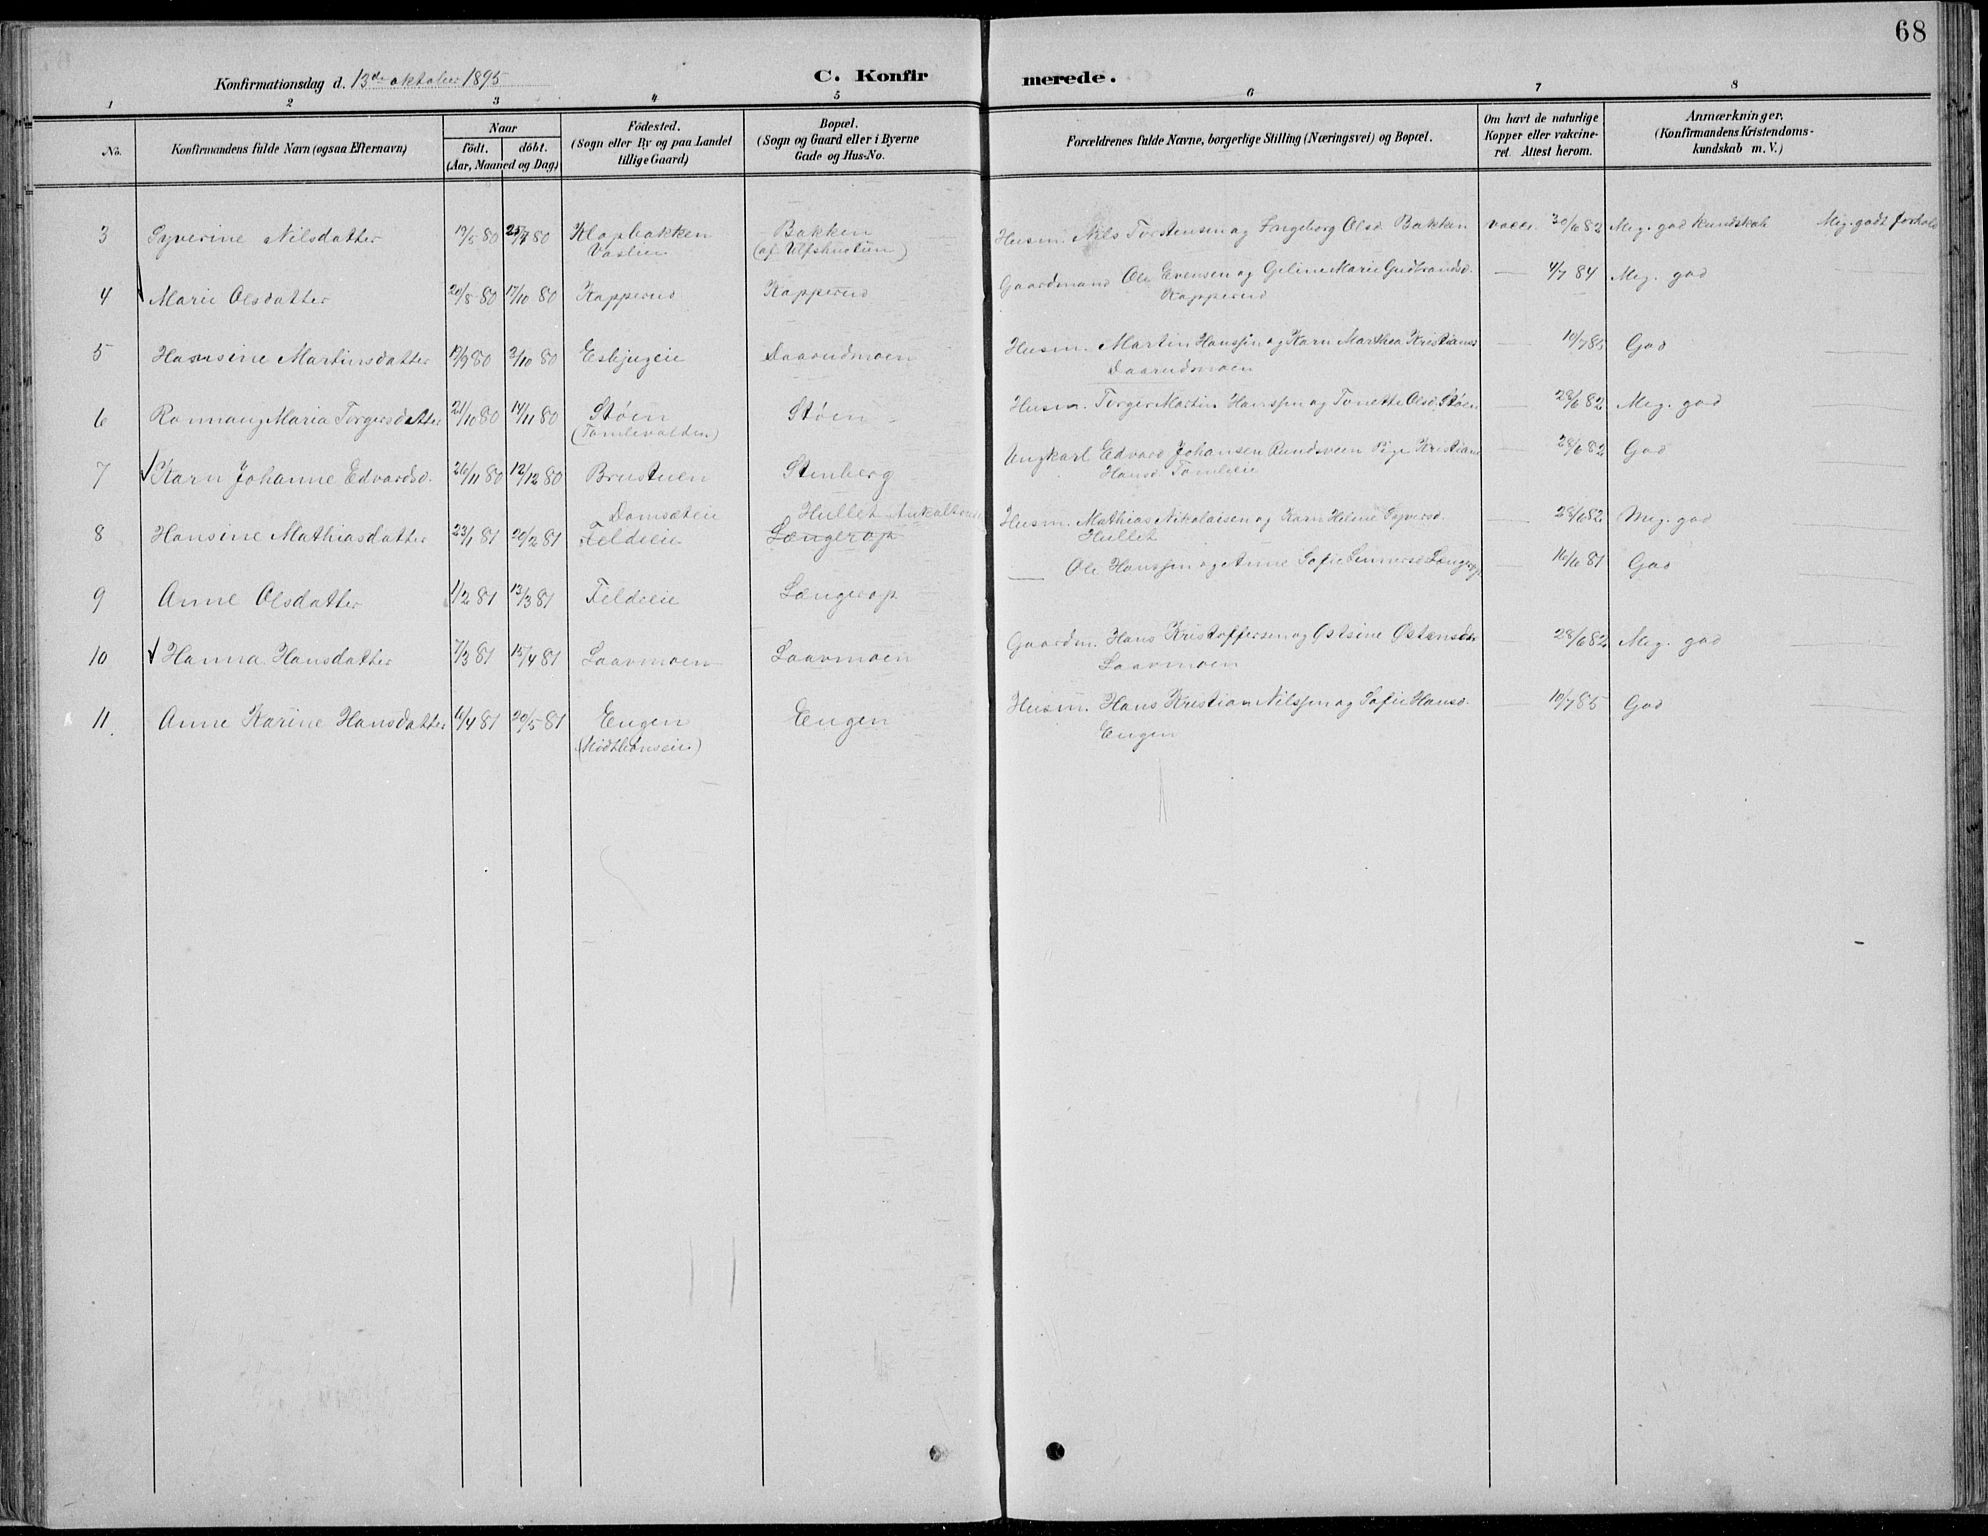 68
Konfirmationsdag d. 13de oktober 1895
C. Konfirmerede.
1 2 3 4 5 6 7 8
No.
Konfirmandens fulde Navn (ogsaa Efternavn)
Naar
födt. döbt.
(Aar, Maaned og Dag)
Födested.
(Sogn eller By og paa Landet
tillige Gaard)
Bopæl.
(Sogn og Gaard eller i Byerne
Gade og Hus-No.
Forældrenes fulde Navne, borgerlige Stilling (Næringsvei) og Bopæl.
Om havt de naturlige
Kopper eller vakcine-
ret. Attest herom.
Anmærkninger.
(Konfirmandens Kristendoms-
kundskab m. V.)
3 Syverine Nilsdatter 19/5 80 80 Klopbakken Bakken Husm. Nils Torstensen og Ingeborg Olsd. Bakken vacc. 30/6 82 Meg. god kundskab Meg. godt forhold
Vaslien
4 Marie Olsdatter 20/8 80 17/10 80 Kapperud Kapperud Gaardmand Ole Evensen og Geline Marie Gudbrandsd. — 4/7 84 Meg. god
Kapperud
5 Hansine Martinsdatter 19/9 80 3/10 80 Daarudmoen Husm. Martin Hanssen og Karn Marthea Kristiansd — 10/7 85 God
Daarudmoen
6 Ronnaug Maria Torgersdatter 21/10 80 14/11 80 Støen Støen Husm. Torger Martin Hanssen og Tonette Olsd. Støen — 28/6 82 Meg. god
(Tomlevolden)
7 Karn Johanne Edvardsd. 26/11 80 12/12 80 Brustuen Stenberg Ungkarl Edvard Johansen Rundsveen Pige Kristiane — 28/6 82 God
Hansd. Tomleeie
8 Hansine Mathiasdatter 23/1 81 20/2 81 Feldeie Længerop Husm. Mathias Nikolaisen og Karn Helene Syversd. — 28/6 82 Meg. god
Hullet
9 Anne Olsdatter 1/2 81 13/3 81 Feldeie Længerop — Ole Hanssen og Anne Sofie Længerop 16/6 81 God
10 Hanna Hansdatter 7/3 81 15/4 81 Laavmoen Laavmoen Gaardm. Hans Kristoffersen og Ostsine Østensdr — 28/6 82 Meg. god
Laavmoen
11 Anne Karine Hansdatter 16/4 81 20/5 81 Engen Engen Husm. Hans Kristian Nilssen og Sofie Hansd. — 10/7 85 God
Engen